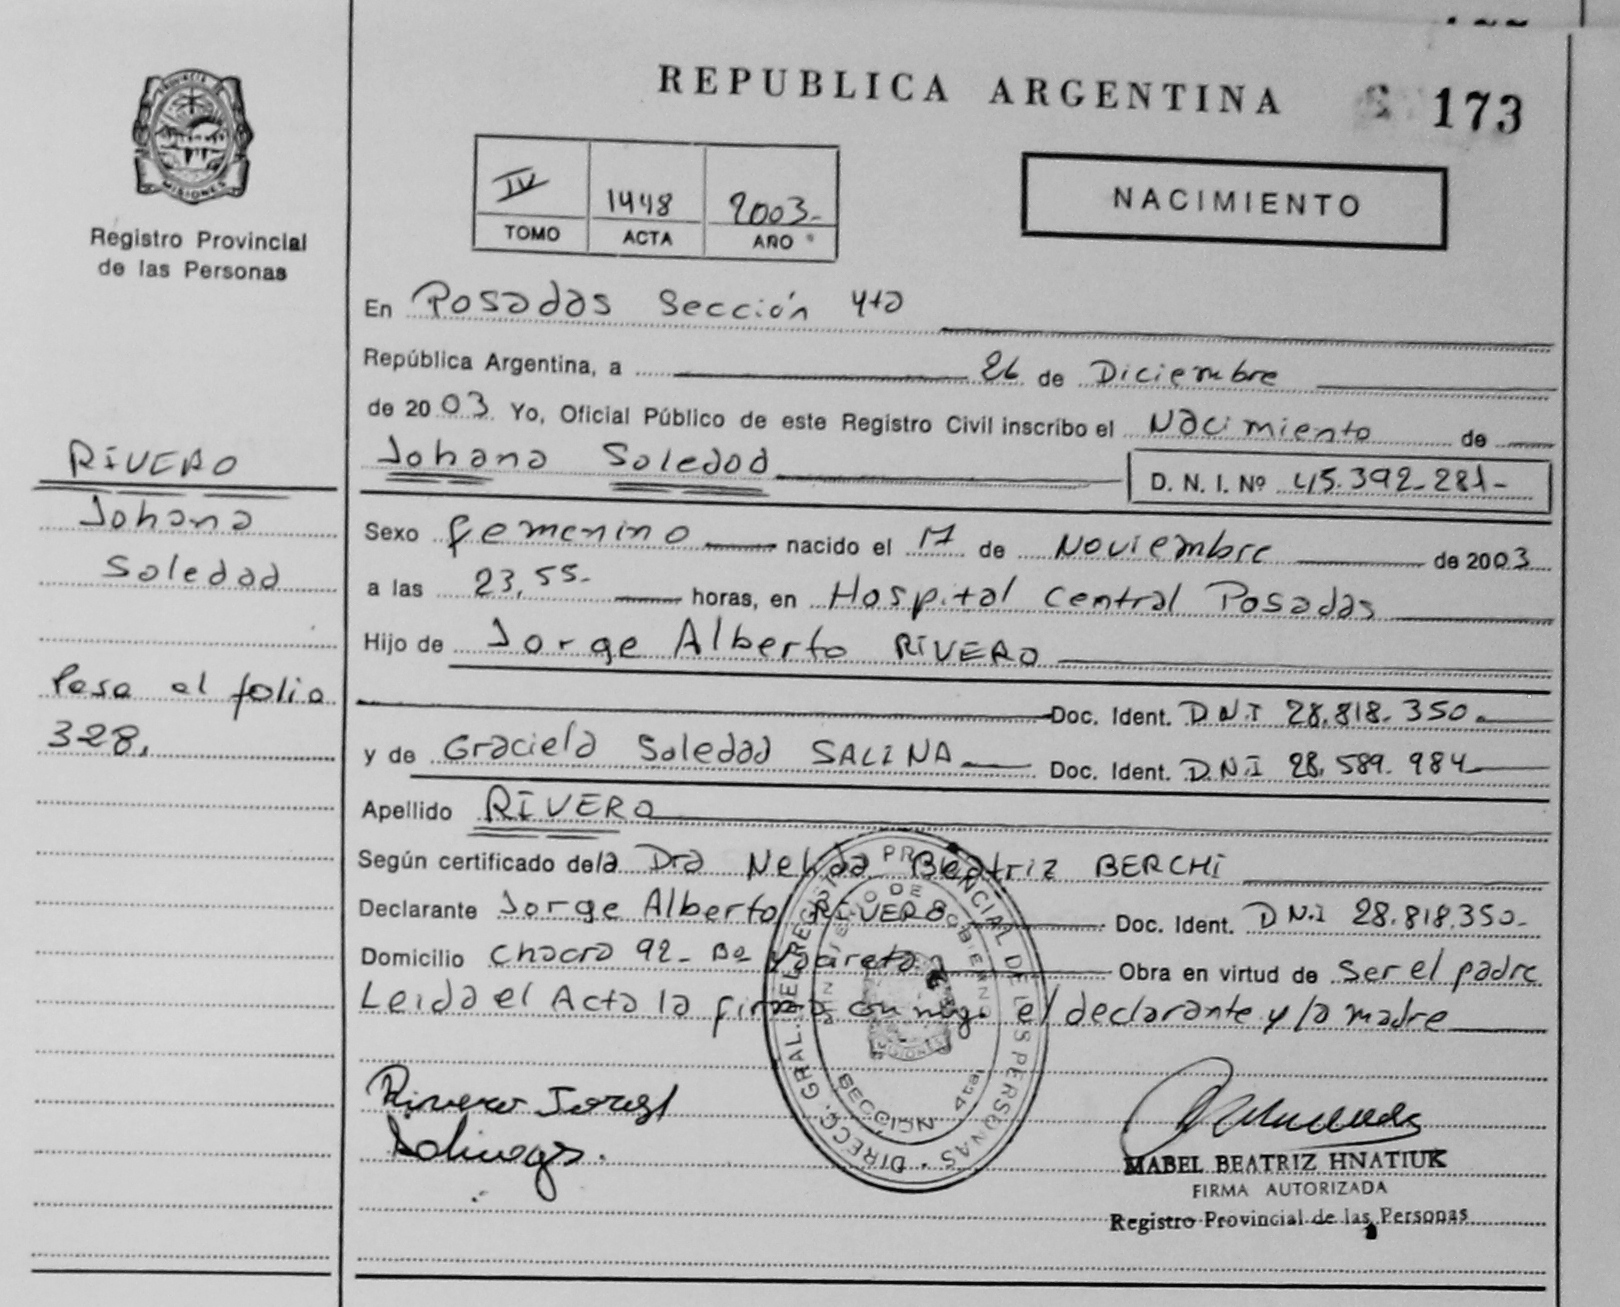 PROVINCIA DE
MISIONES
Registro Provincial
de las Personas
RIVERO
Johana
Soledad
Pasa al folio
328.
REPUBLICA ARGENTINA 173
IV 1448 2003-
TOMO ACTA AÑO
NACIMIENTO
En Posadas Sección 4ta
República Argentina, a 26 de Diciembre
de 2003 Yo, Oficial Público de este Registro Civil inscribo el Nacimiento de
Johana Soledad D. N. I. Nº 45.392-281-
Sexo femenino nacido el 17 de Noviembre de 2003
a las 23,55- horas, en Hospital Central Posadas
Hijo de Jorge Alberto RIVERO
Doc. Ident. D.N.I 28.818.350.
y de Graciela Soledad SALINA Doc. Ident. D.N.I 28.589.984
Apellido RIVERO
Según certificado dela Dra Nelida Beatriz BERCHI
Declarante Jorge Alberto RIVERO Doc. Ident. D N.I 28.818.350-
Domicilio Chacra 92- Bº Yacireta Obra en virtud de Ser el padre
Leida el Acta la firma conmigo el declarante y la madre
Rivero Jorge
DIRECC. GRAL. DEL REGISTRO PROVINCIAL DE LAS PERSONAS
MINISTERIO DE GOBIERNO
MISIONES
SECCION 4ta
MABEL BEATRIZ HNATIUK
FIRMA AUTORIZADA
Registro Provincial de las Personas